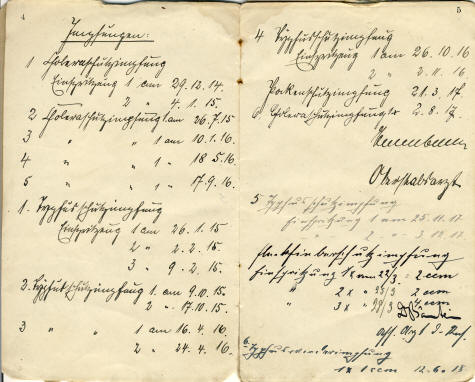 4
Impfungen:
1 Choleraschutzimpfung
Einspritzung 1 am 29.12.14.
2 " 4.1.15.
2 Choleraschutzimpfung 1 am 26.7.15
3 " " 1 am 10.1.16.
4 " " 1 " 18.5.16.
5 " " 1 " 17.9.16.
1. Typhusschutzimpfung
Einspritzung 1 am 26.1.15
2 " 2.2.15.
3 " 9.2.15.
2. Typhusschutzimpfung 1. am 9.10.15.
2 " 17.10.15.
3 " " 1 am 16.4.16.
2 " 24.4.16.
5
4 Typhusschutzimpfung
Einspritzung 1 am 26.10.16
2 " 2.11.16.
Pockenschutzimpfung 21.3.17.
6 Choleraschutzimpfung 2.8.17.
Oberstabsarzt
5 Typhusschutzimpfung
Einspritzung 1 am 25.11.17.
2 " 3.12.17.
Fleckfieberschutzimpfung
Einspritzung 1 x am 22/3 = 2 ccm
" 2 x " 2 ccm
" 3 x " ccm
6. Typhuswiederimpfung
1 x 1 ccm 12.6.18